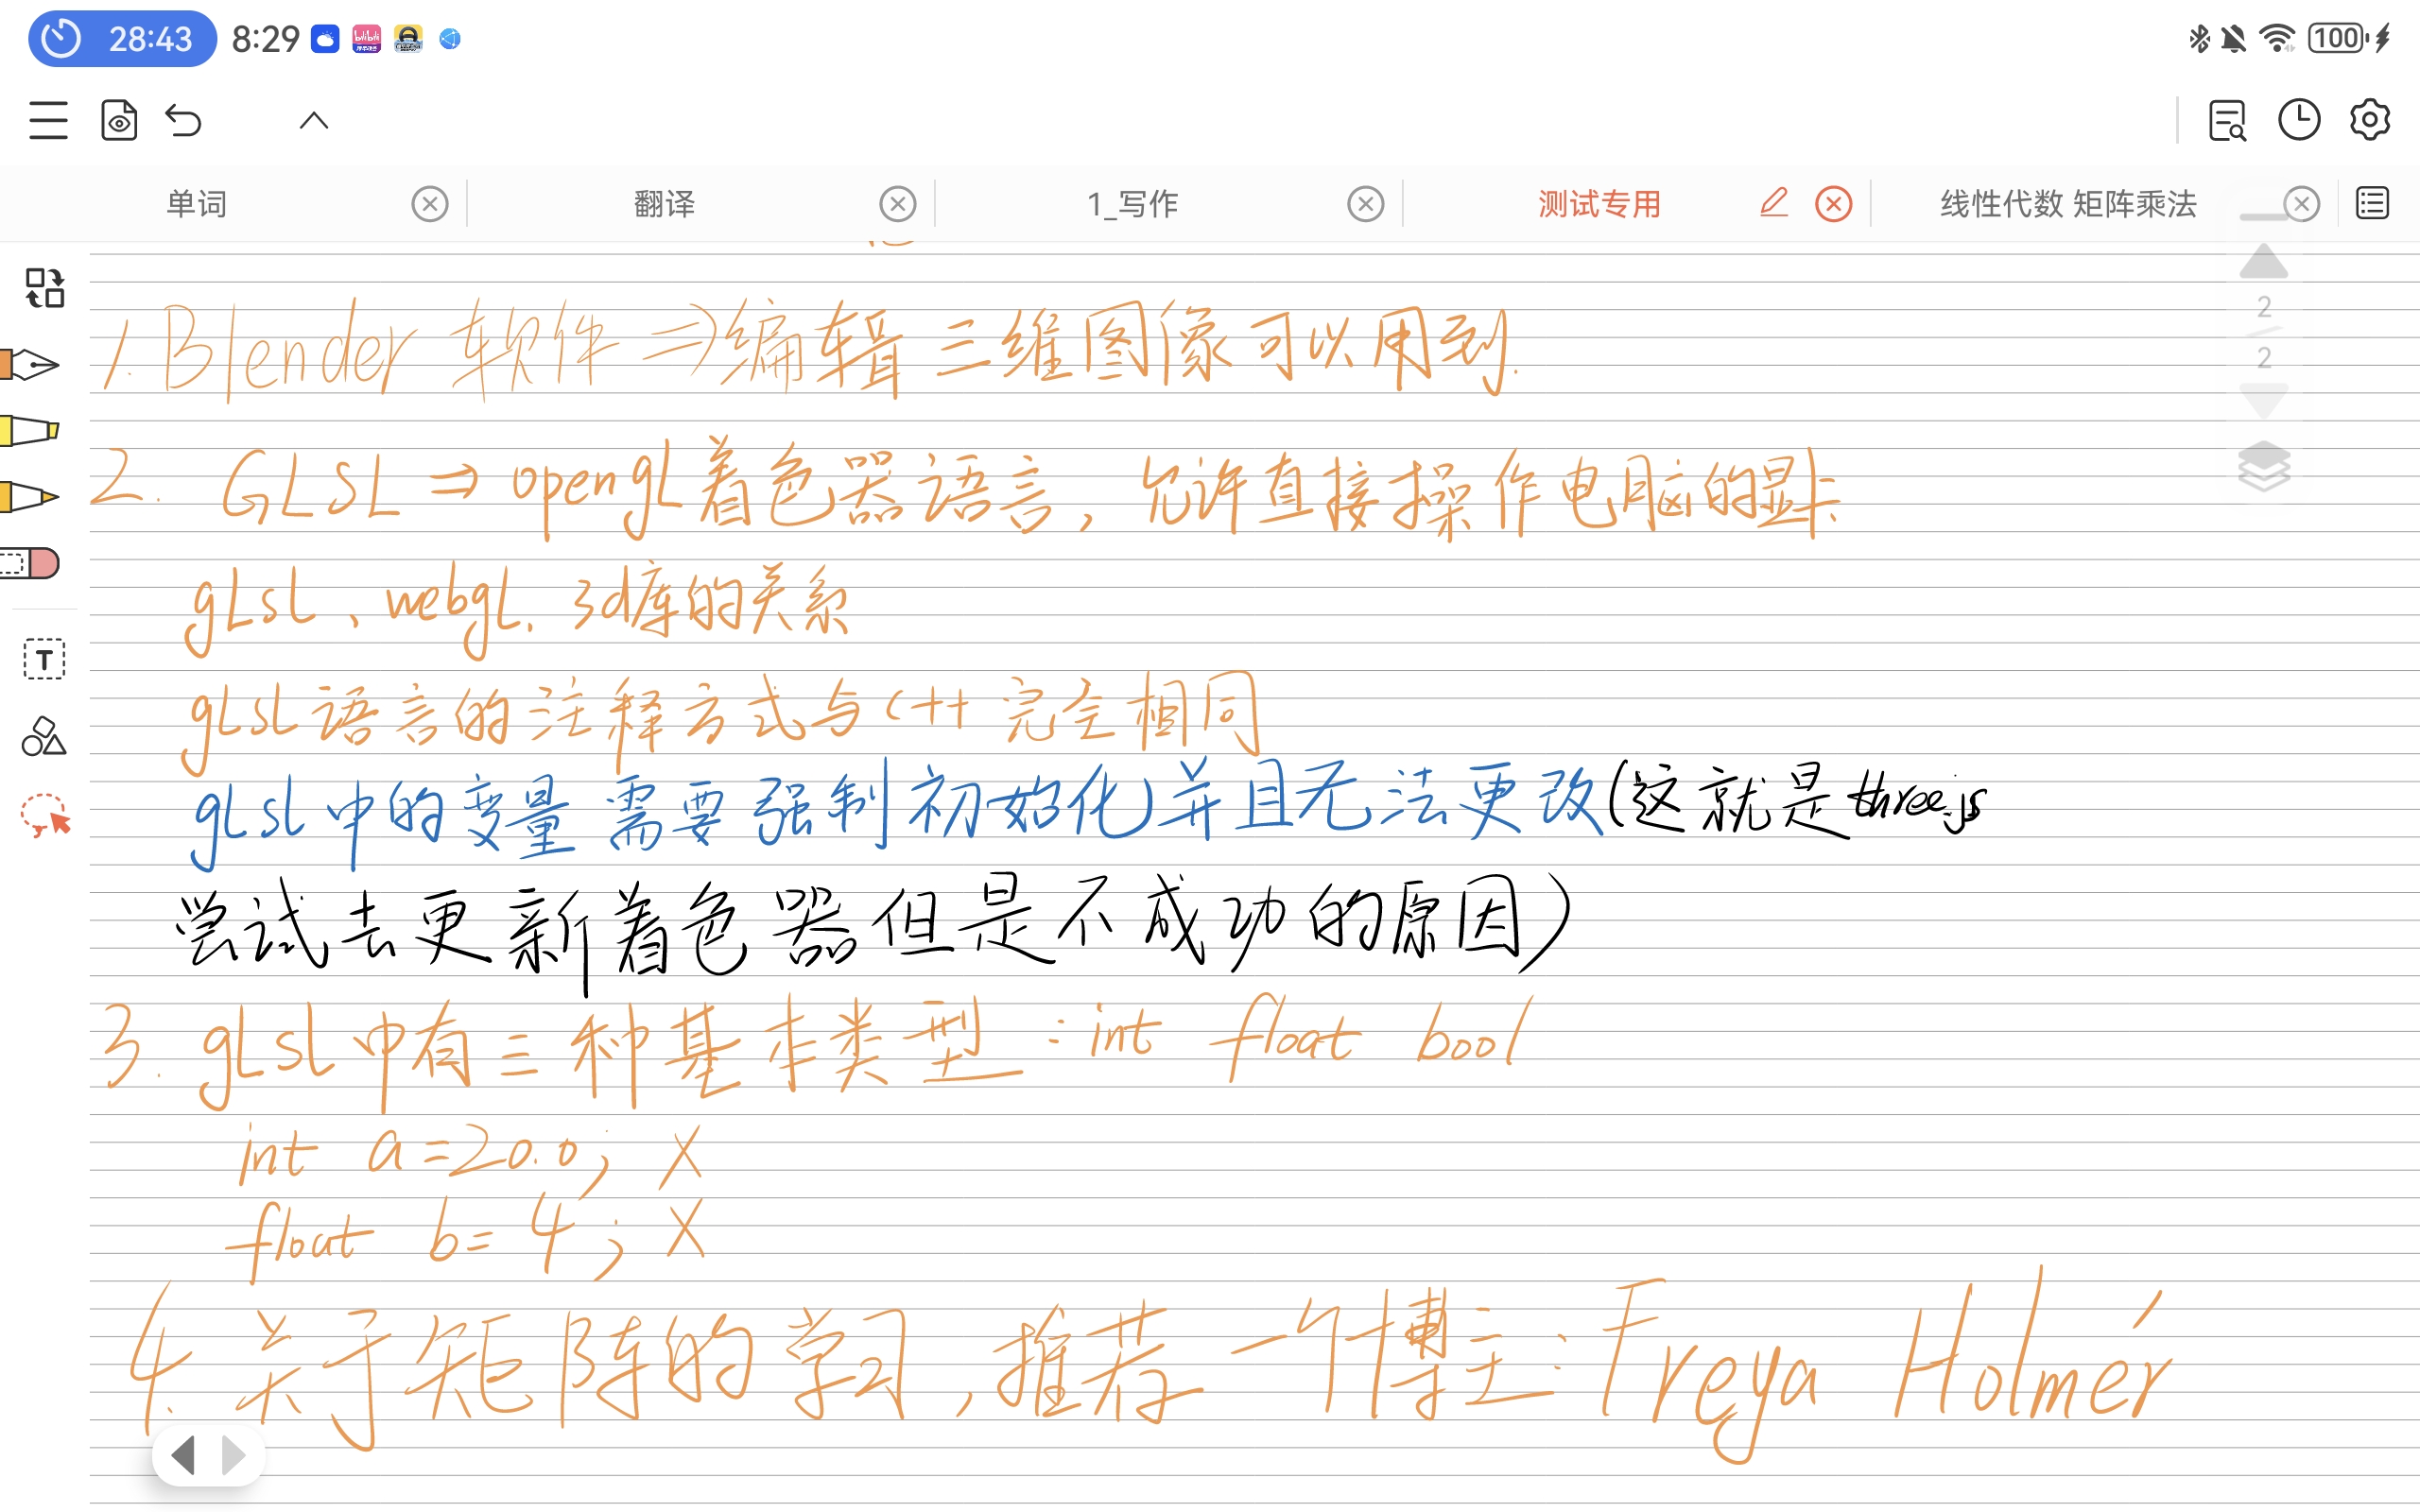 28:43 8:29 100
单词 翻译 1_写作 测试专用 线性代数 矩阵乘法
1. Blender 软件⇒编辑三维图像可以用到.
2. GLSL ⇒ opengL着色器语言, 允许直接操作电脑的显卡
gLsL、webgL、3d库的关系
gLsL语言的注释方式与C++完全相同
gLsL中的变量需要强制初始化)并且无法更改(这就是three.js
尝试去更新着色器但是不成功的原因)
3. gLsL中有三种基本类型:int float bool
int a=20.0; X
float b=4; X
4. 关于矩阵的学习,推荐一个博主:Freya Holmér
2
2
T